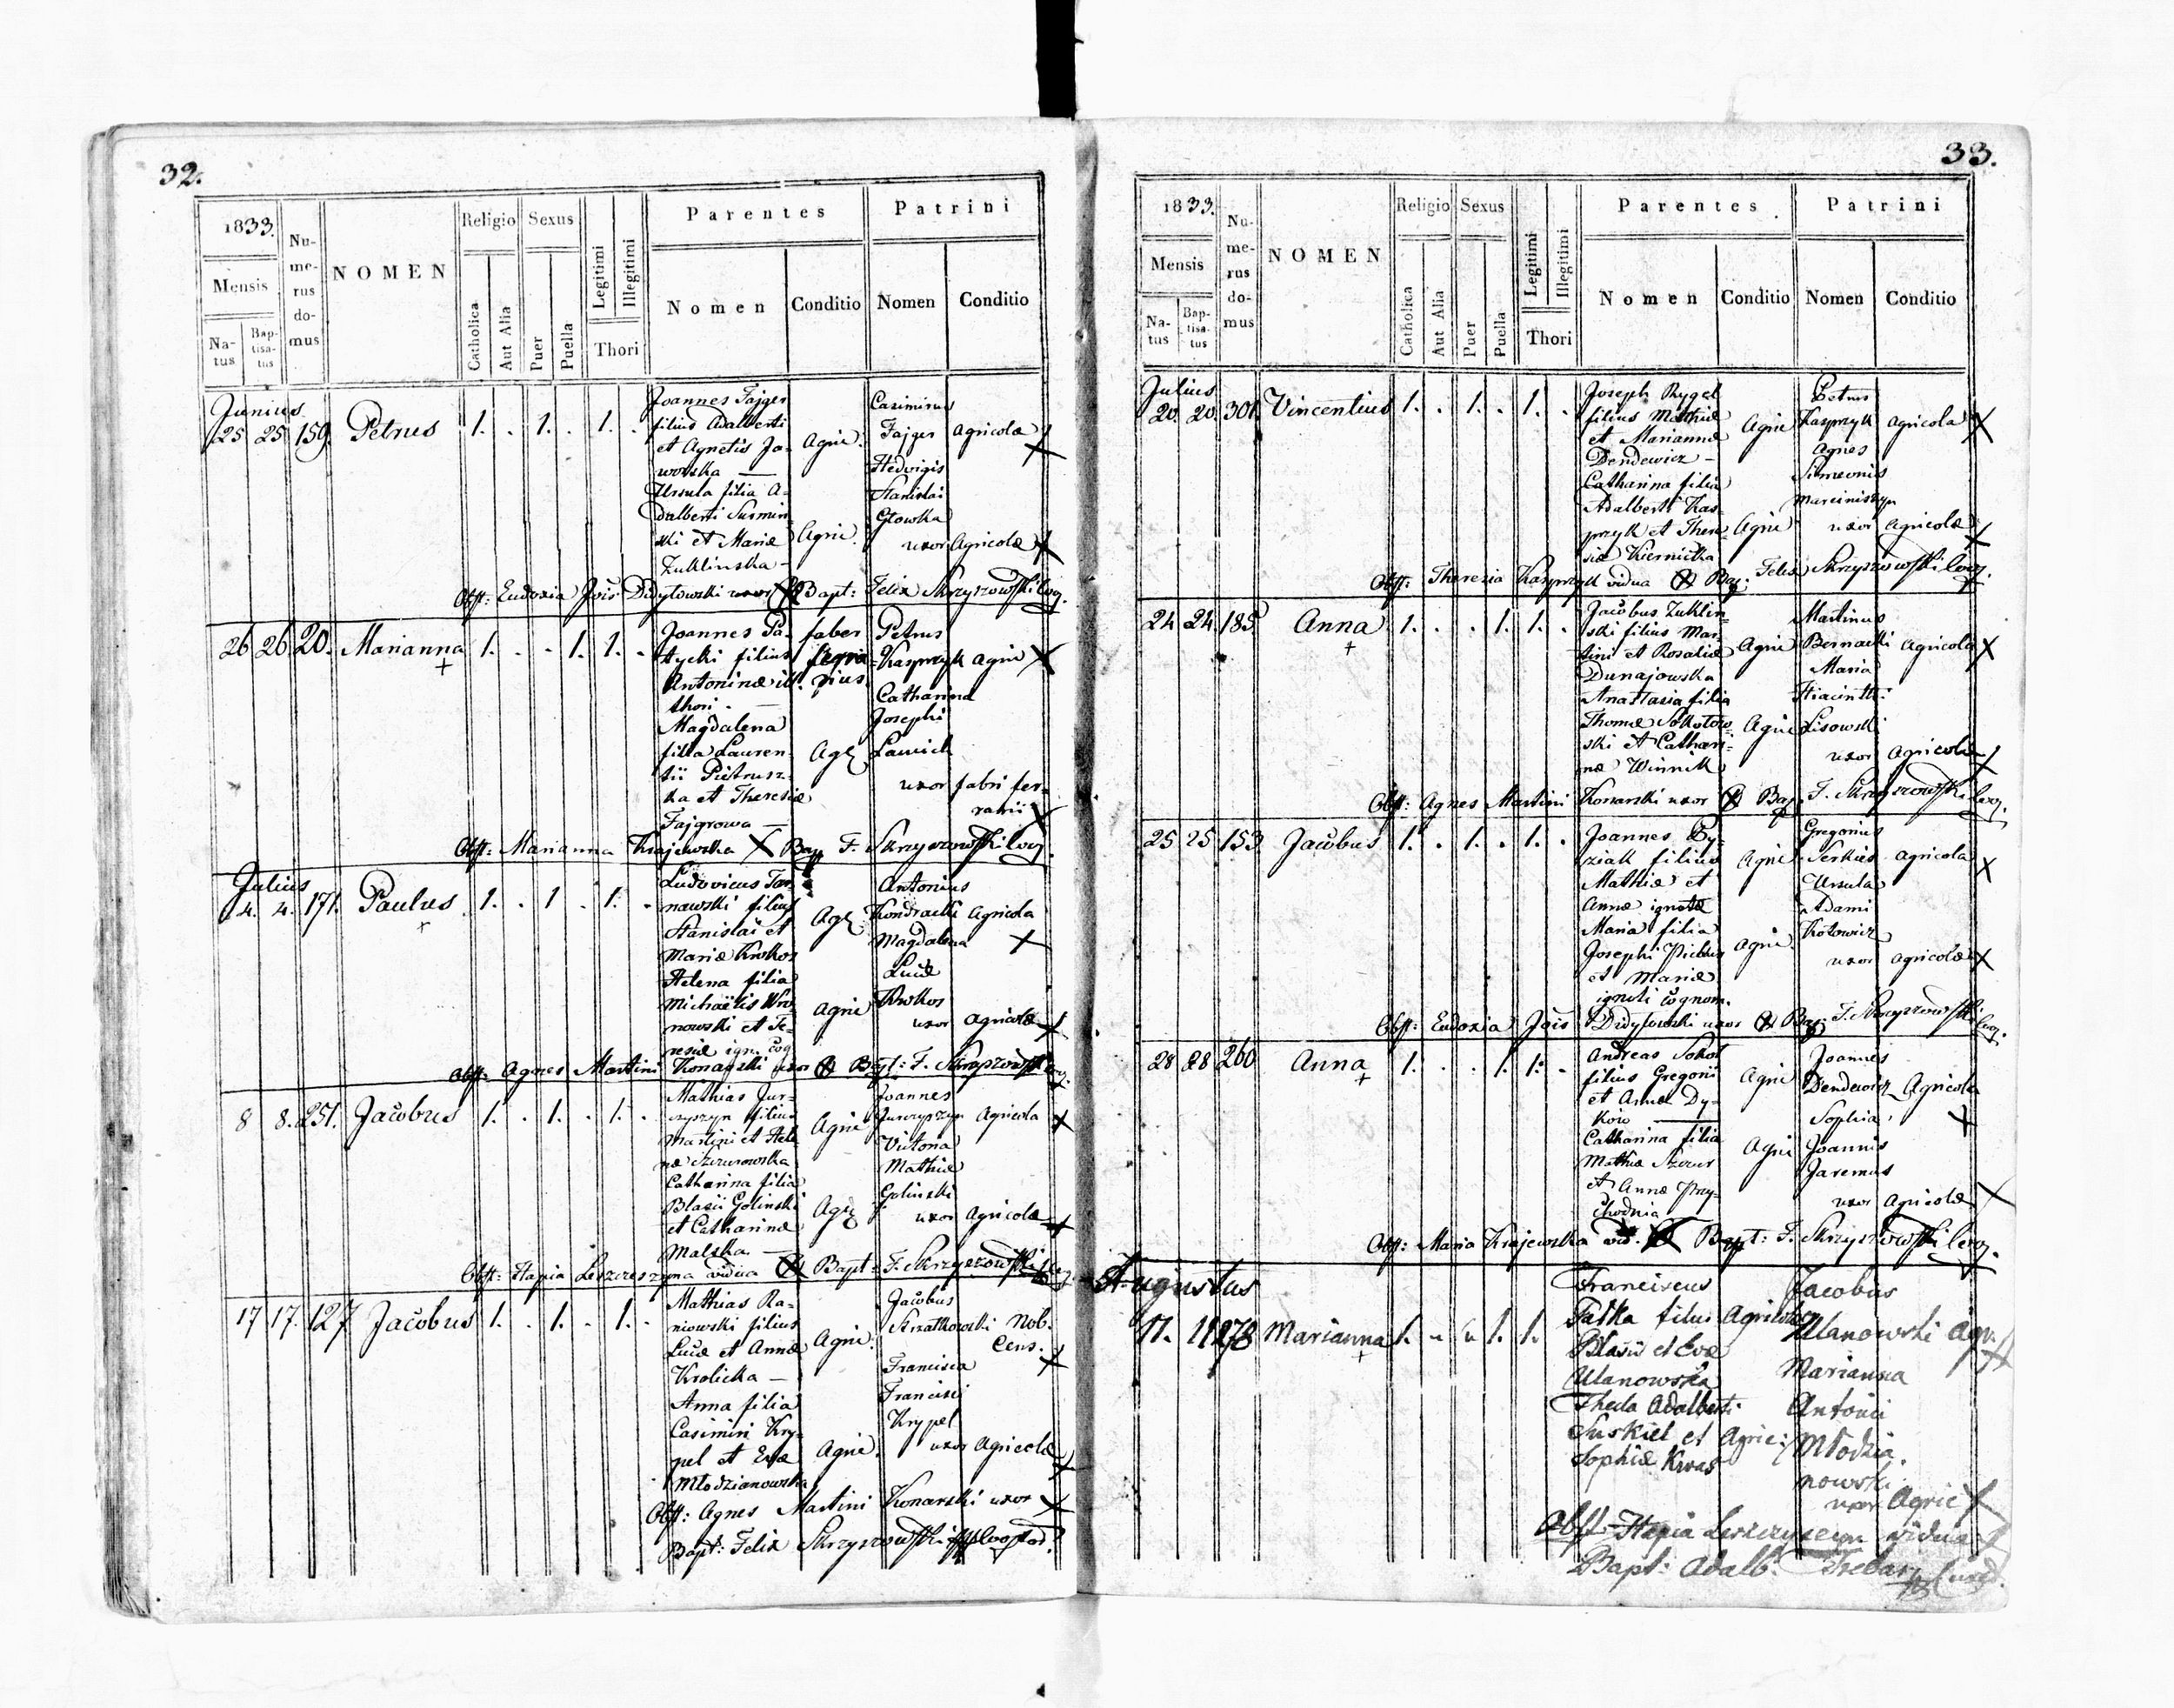 32.
1833.
Mensis
Na-
tus
Bap-
tisa-
tus
Nu-
me-
rus
do-
mus
NOMEN
Religio
Catholica
Aut Alia
Sexus
Puer
Puella
Legitimi
Illegitimi
Thori
Parentes
Nomen
Conditio
Patrini
Nomen
Conditio
Junius
25 25 159. Petrus 1. . 1. . 1. .
Joannes Fajger
filius Adalberti
et Agnetis Ja-
worska —
Agric.
Ursula filia A-
dalberti Surmin
ski et Mariæ
Zuklinska -
Agric.
Casimirus
Fajger Agricola
Hedvigis
Stanislai
Głowka
uxor Agricolæ
Obst: Eudoxia Jois Didytowski uxor Bapt: Felix Skrzyszowski Coop.
26 26 20. Marianna 1. . . 1. 1. .
Joannes Pa-
tycki filius
Antoninæ ill.
thori. —
faber
Magdalena
filia Lauren-
tii Pietrusz-
ka et Theresiæ
Fajgrowa —
Petrus
Kasprzyk Agric
Catharina
Josephi
uxor fabri fer-
rarii
Obst: Marianna Krajewska Bap F. Skrzyszowski Coop.
Julius
4. 4. 171. Paulus 1. . 1 . 1. .
Ludovicus Tar-
nawski filius
Stanislai et
Mariæ Krokos
Helena filia
Michaëlis Wro
nowski et Te-
resiæ ign. cog
Agric
Antonius
Kondracki Agricola
Magdalena
Lucæ
Krokos
uxor Agricolæ
Obst: Agnes Martini Konarski uxor Bapt: F. Skrzyszowski Coop.
8 8. 251. Jacobus 1. . 1. . 1. .
Mathias Jur-
czyszyn filius
Martini et Hele
næ Szczurowska
Agric
Catharina filia
Blasii Golinski
et Catharinæ
Malska —
Joannes
Jurczyszyn Agricola
Victoria
Mathiæ
Golinski
uxor Agricolæ
Obst: Hapia Leszczeszyna vidua Bapt: F. Skrzyszowski Coop.
17 17. 127 Jacobus 1. . 1. . 1. .
Mathias Ra-
niowski filius
Lucæ et Annæ
Krolicka —
Agric.
Anna filia
Casimiri Kry-
pel et Evæ
Młodzianowska
Agric.
Jacobus
Kwatkowski Nob.
Cens.
Francisca
Francisci
Krypel
uxor Agricolæ
Obst: Agnes Martini Konarski uxor
Bapt: Felix Skrzyszowski
33.
1833.
Mensis
Na-
tus
Bap-
tisa-
tus
Nu-
me-
rus
do-
mus
NOMEN
Religio
Catholica
Aut Alia
Sexus
Puer
Puella
Legitimi
Illegitimi
Thori
Parentes
Nomen
Conditio
Patrini
Nomen
Conditio
Julius
20. 20. 301. Vincentius 1. . 1. . 1. .
Joseph Rygel
filius Mathiæ
et Mariannæ
Dendewicz -
Agric
Catharina filia
Adalberti Kas-
przyk et There-
siæ Kiernicka
Agric
Petrus
Kasprzyk Agricola
Agnes
Simeonis
Marciniszyn
uxor Agricolæ
Obst: Theresia Kasprzyk vidua Bap: Felix Skrzyszowski Coop.
24 24. 185 Anna 1. . . 1. 1. .
Jacobus Zuklin-
ski filius Mar-
tini et Rosaliæ
Dunajowska
Agric
Anastasia filia
Thomæ Sokołow-
ski et Cathari-
næ Winnik
Agric
Martinus
Bernacki Agricola
Maria
Hiacinthi
Lisowski
uxor Agricolæ
Obst: Agnes Martini Konarski uxor Bap. F. Skrzyszowski Coop.
25 25 153 Jacobus 1. . 1. . 1. .
Joannes Dy-
ziak filius
Mathiæ et
Annæ ignotæ
Agric
Maria filia
Josephi
et Mariæ
ignoti cognom.
Agric
Gregorius
Serkies Agricola
Ursula
Adami
Kotowicz
uxor Agricolæ
Obst: Eudoxia Jois Didytowski uxor Bap: F. Skrzyszowski Coop.
28 28 260 Anna 1. . . 1. 1. .
Andreas Sokoł
filius Gregorii
et Annæ Dy-
kow —
Agric
Catharina filia
Mathiæ Szczur
et Annæ Przy-
chodnia
Agric
Joannes
Dendewicz Agricola
Sophia
Joannis
Jaremus
uxor Agricolæ
Obst: Maria Krajewska vid. Bapt: F. Skrzyszowski Coop.
Augustus
11. 11 278 Marianna 1. 1. 1.
Franciscus
Fatka filius Agricola
Blasii et Evæ
Ulanowska
Thecla Adalberti
Suskiel et Agric:
Sophiæ Kwas
Jacobus
Ulanowski Agr.
Marianna
Antonii
Młodzia
nowski
uxor Agric
Obst Hapia Leszczyszyn vidua
Bapt: Adalb.